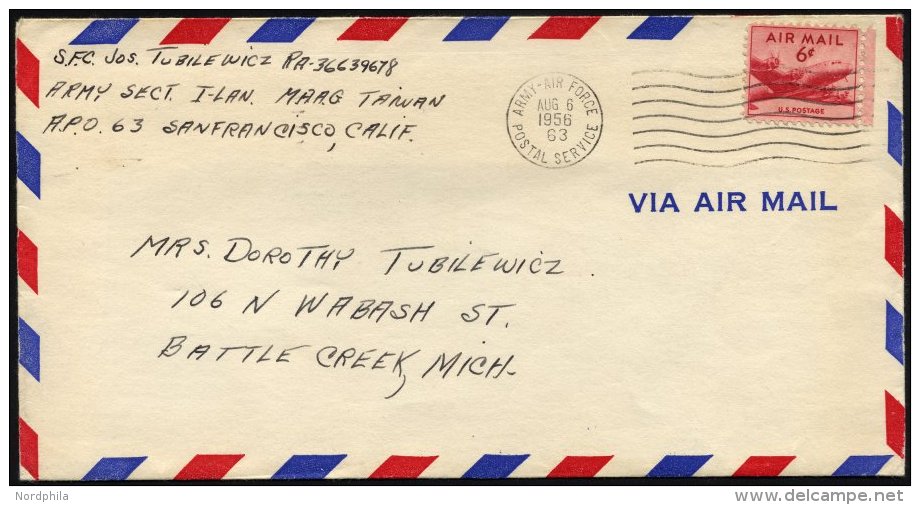 S.F.C. Jos. TUBILEWICZ RA-36639678
ARMY SECT. I-LAN. MAAG TAIWAN
A.P.O. 63 SANFRANCISCO, CALIF.
ARMY-AIR FORCE
AUG 6
1956
63
POSTAL SERVICE
AIR MAIL
6¢
U.S. POSTAGE
VIA AIR MAIL
MRS. DOROTHY TUBILEWICZ
106 N WABASH ST.
BATTLE CREEK, MICH.
Nordphila
delcampe.net